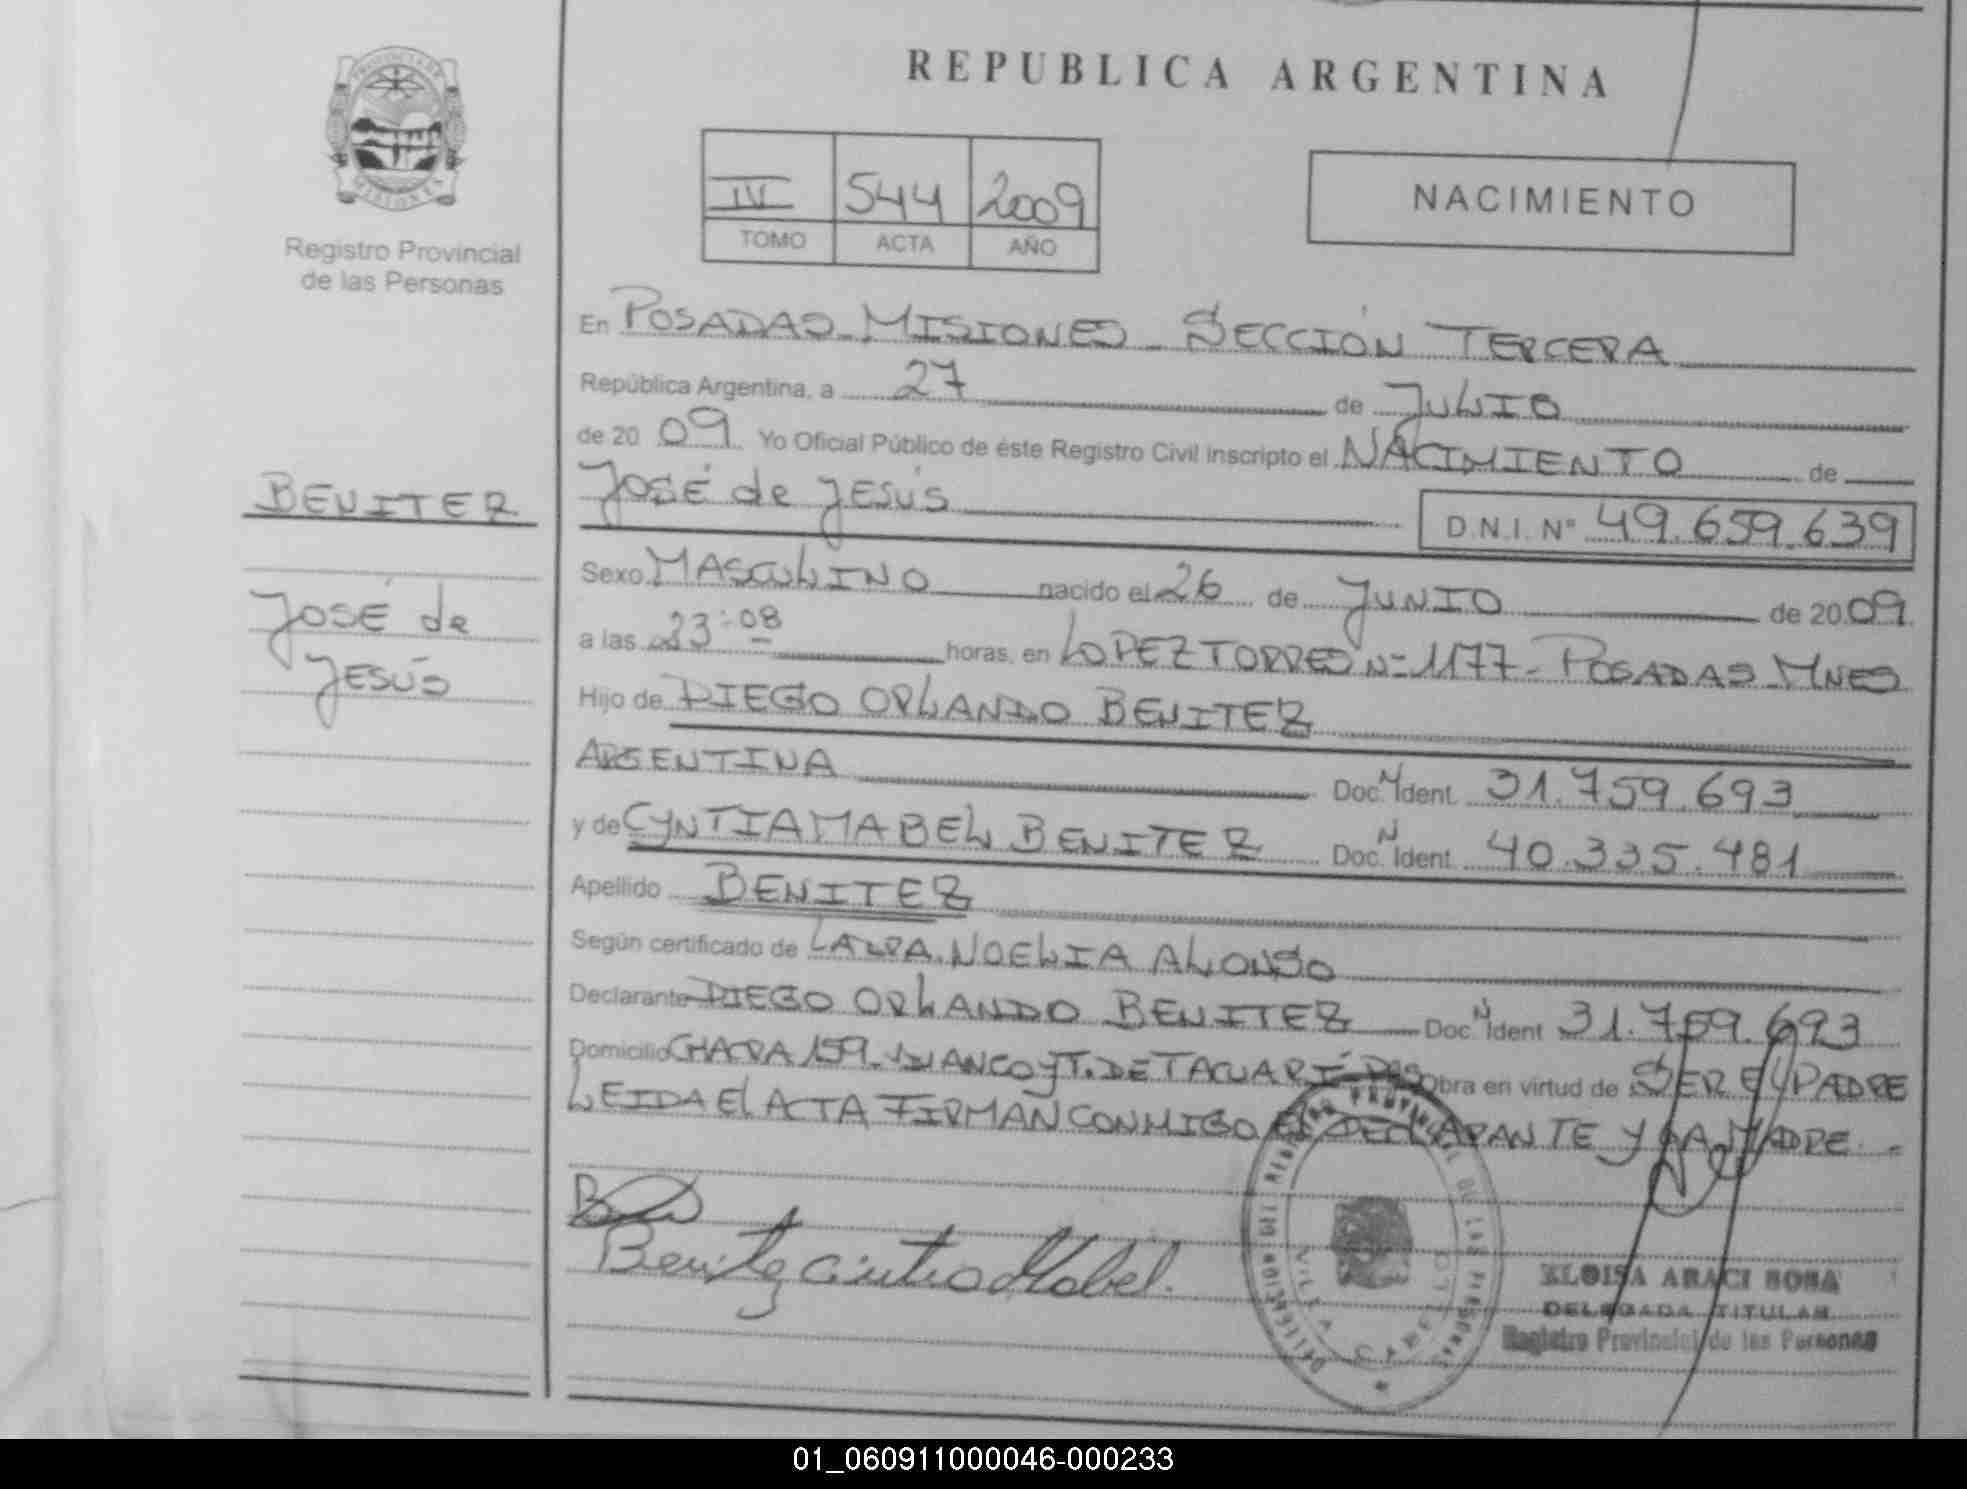 REPUBLICA ARGENTINA
PROVINCIA DE
MISIONES
Registro Provincial
de las Personas
IV 544 2009
TOMO ACTA AÑO
NACIMIENTO
En POSADAS - MISIONES - SECCIÓN TERCERA
República Argentina, a 27 de JULIO
de 2009 Yo Oficial Público de éste Registro Civil inscripto el NACIMIENTO de
BENITEZ
JOSÉ de JESÚS D.N.I. Nº 49.659.639
Sexo MASCULINO nacido el 26 de JUNIO de 2009
JOSÉ de
JESÚS
a las 23:08 horas, en LOPEZ TORRES Nº 1177 - POSADAS MNES
Hijo de DIEGO ORLANDO BENITEZ
ARGENTINA Doc. N Ident. 31.759.693
y de CYNTIA MABEL BENITEZ Doc. N Ident. 40.335.481
Apellido BENITEZ
Según certificado de LAURA NOELIA ALONSO
Declarante DIEGO ORLANDO BENITEZ Doc. N Ident 31.759.693
Domicilio CHACRA 159 - DE TACUARÍ PDAS Obra en virtud de SER EL PADRE
LEIDA El ACTA FIRMAN CONMIGO EL DECLARANTE Y LA MADRE.-
Benitez cintia Mabel.
DELEGACION DEL REGISTRO PROVINCIAL DE LAS PERSONAS
VILLA CABELLO
ELOISA ARACI SOSA
DELEGADA TITULAR
Registro Provincial de las Personas
01_060911000046-000233